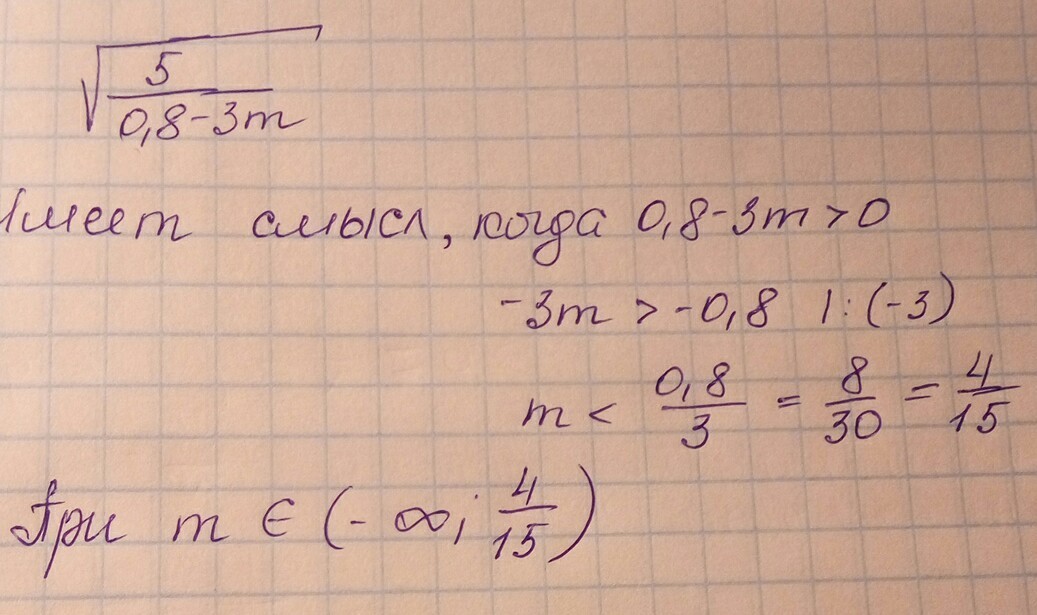 √(5/(0,8-3m))
Имеет смысл, когда 0,8-3m>0
-3m > -0,8 |:(-3)
m < 0,8/3 = 8/30 = 4/15
При m ∈ (-∞; 4/15)